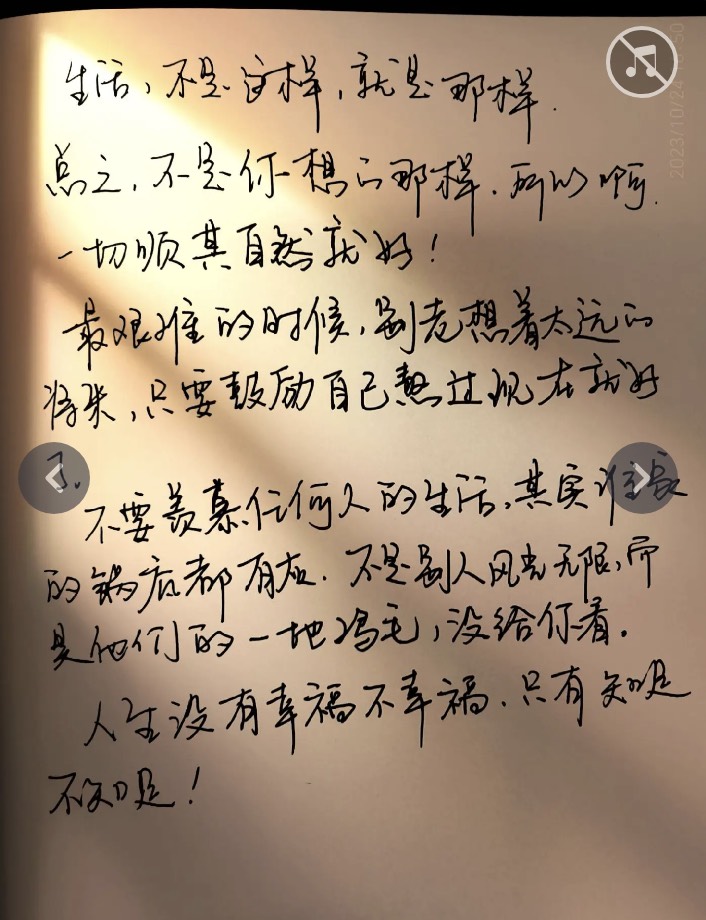 生活，不是这样，就是那样．
总之，不是你想的那样．所以啊．
一切顺其自然就好！
最艰难的时候，别老想着太远的
将来，只要鼓励自己熬过现在就好
了．
不要羡慕任何人的生活，其实谁家
的锅底都有灰．不是别人风光无限，而
是他们的一地鸡毛，没给你看．
人生没有幸福不幸福．只有知足
不知足！